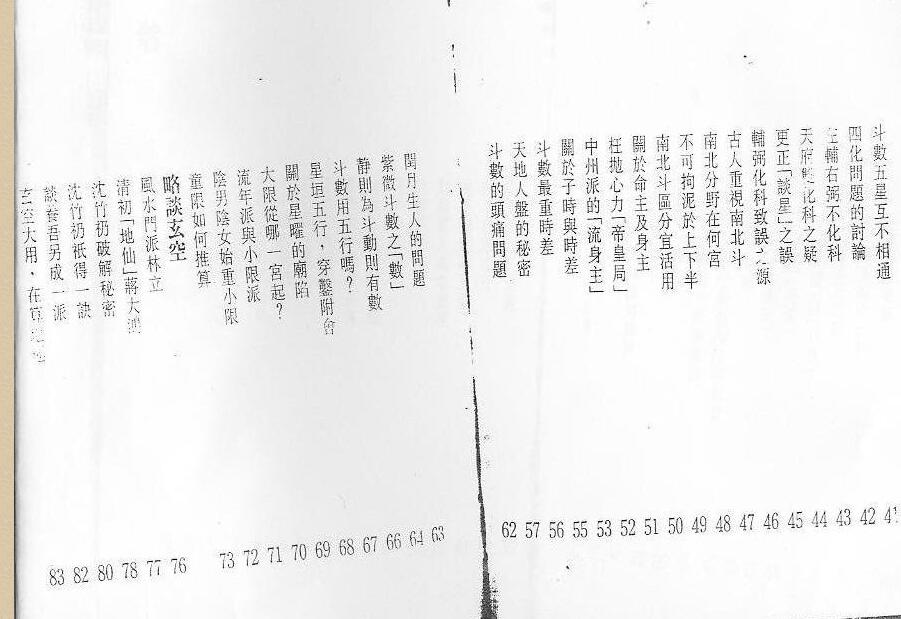 斗數五星互不相通 41
四化問題的討論 42
左輔右弼不化科 43
天府化科之疑 44
更正「談星」之誤 45
輔弼化科致誤之源 46
古人重視南北斗 47
南北分野在何宮 48
不可拘泥於上下半 49
南北斗區分宜活用 50
關於命主及身主 51
枉拋心力「帝皇局」 52
中州派的「流身主」 53
關於子時與時差 55
斗數最重時差 56
天地人盤的秘密 57
斗數的頭痛問題 62
閏月生人的問題 63
紫微斗數之「數」 64
靜則為斗動則有數 66
斗數用五行嗎？ 67
星垣五行，穿鑿附會 68
關於星曜的廟陷 69
大限從哪一宮起？ 70
流年派與小限派 71
陰男陰女始重小限 72
童限如何推算 73
略談玄空
風水門派林立 76
清初「地仙」蔣大鴻 77
沈竹礽破解秘密 78
沈竹礽祇得一訣 80
談養吾另成一派 82
玄空大用，在 83